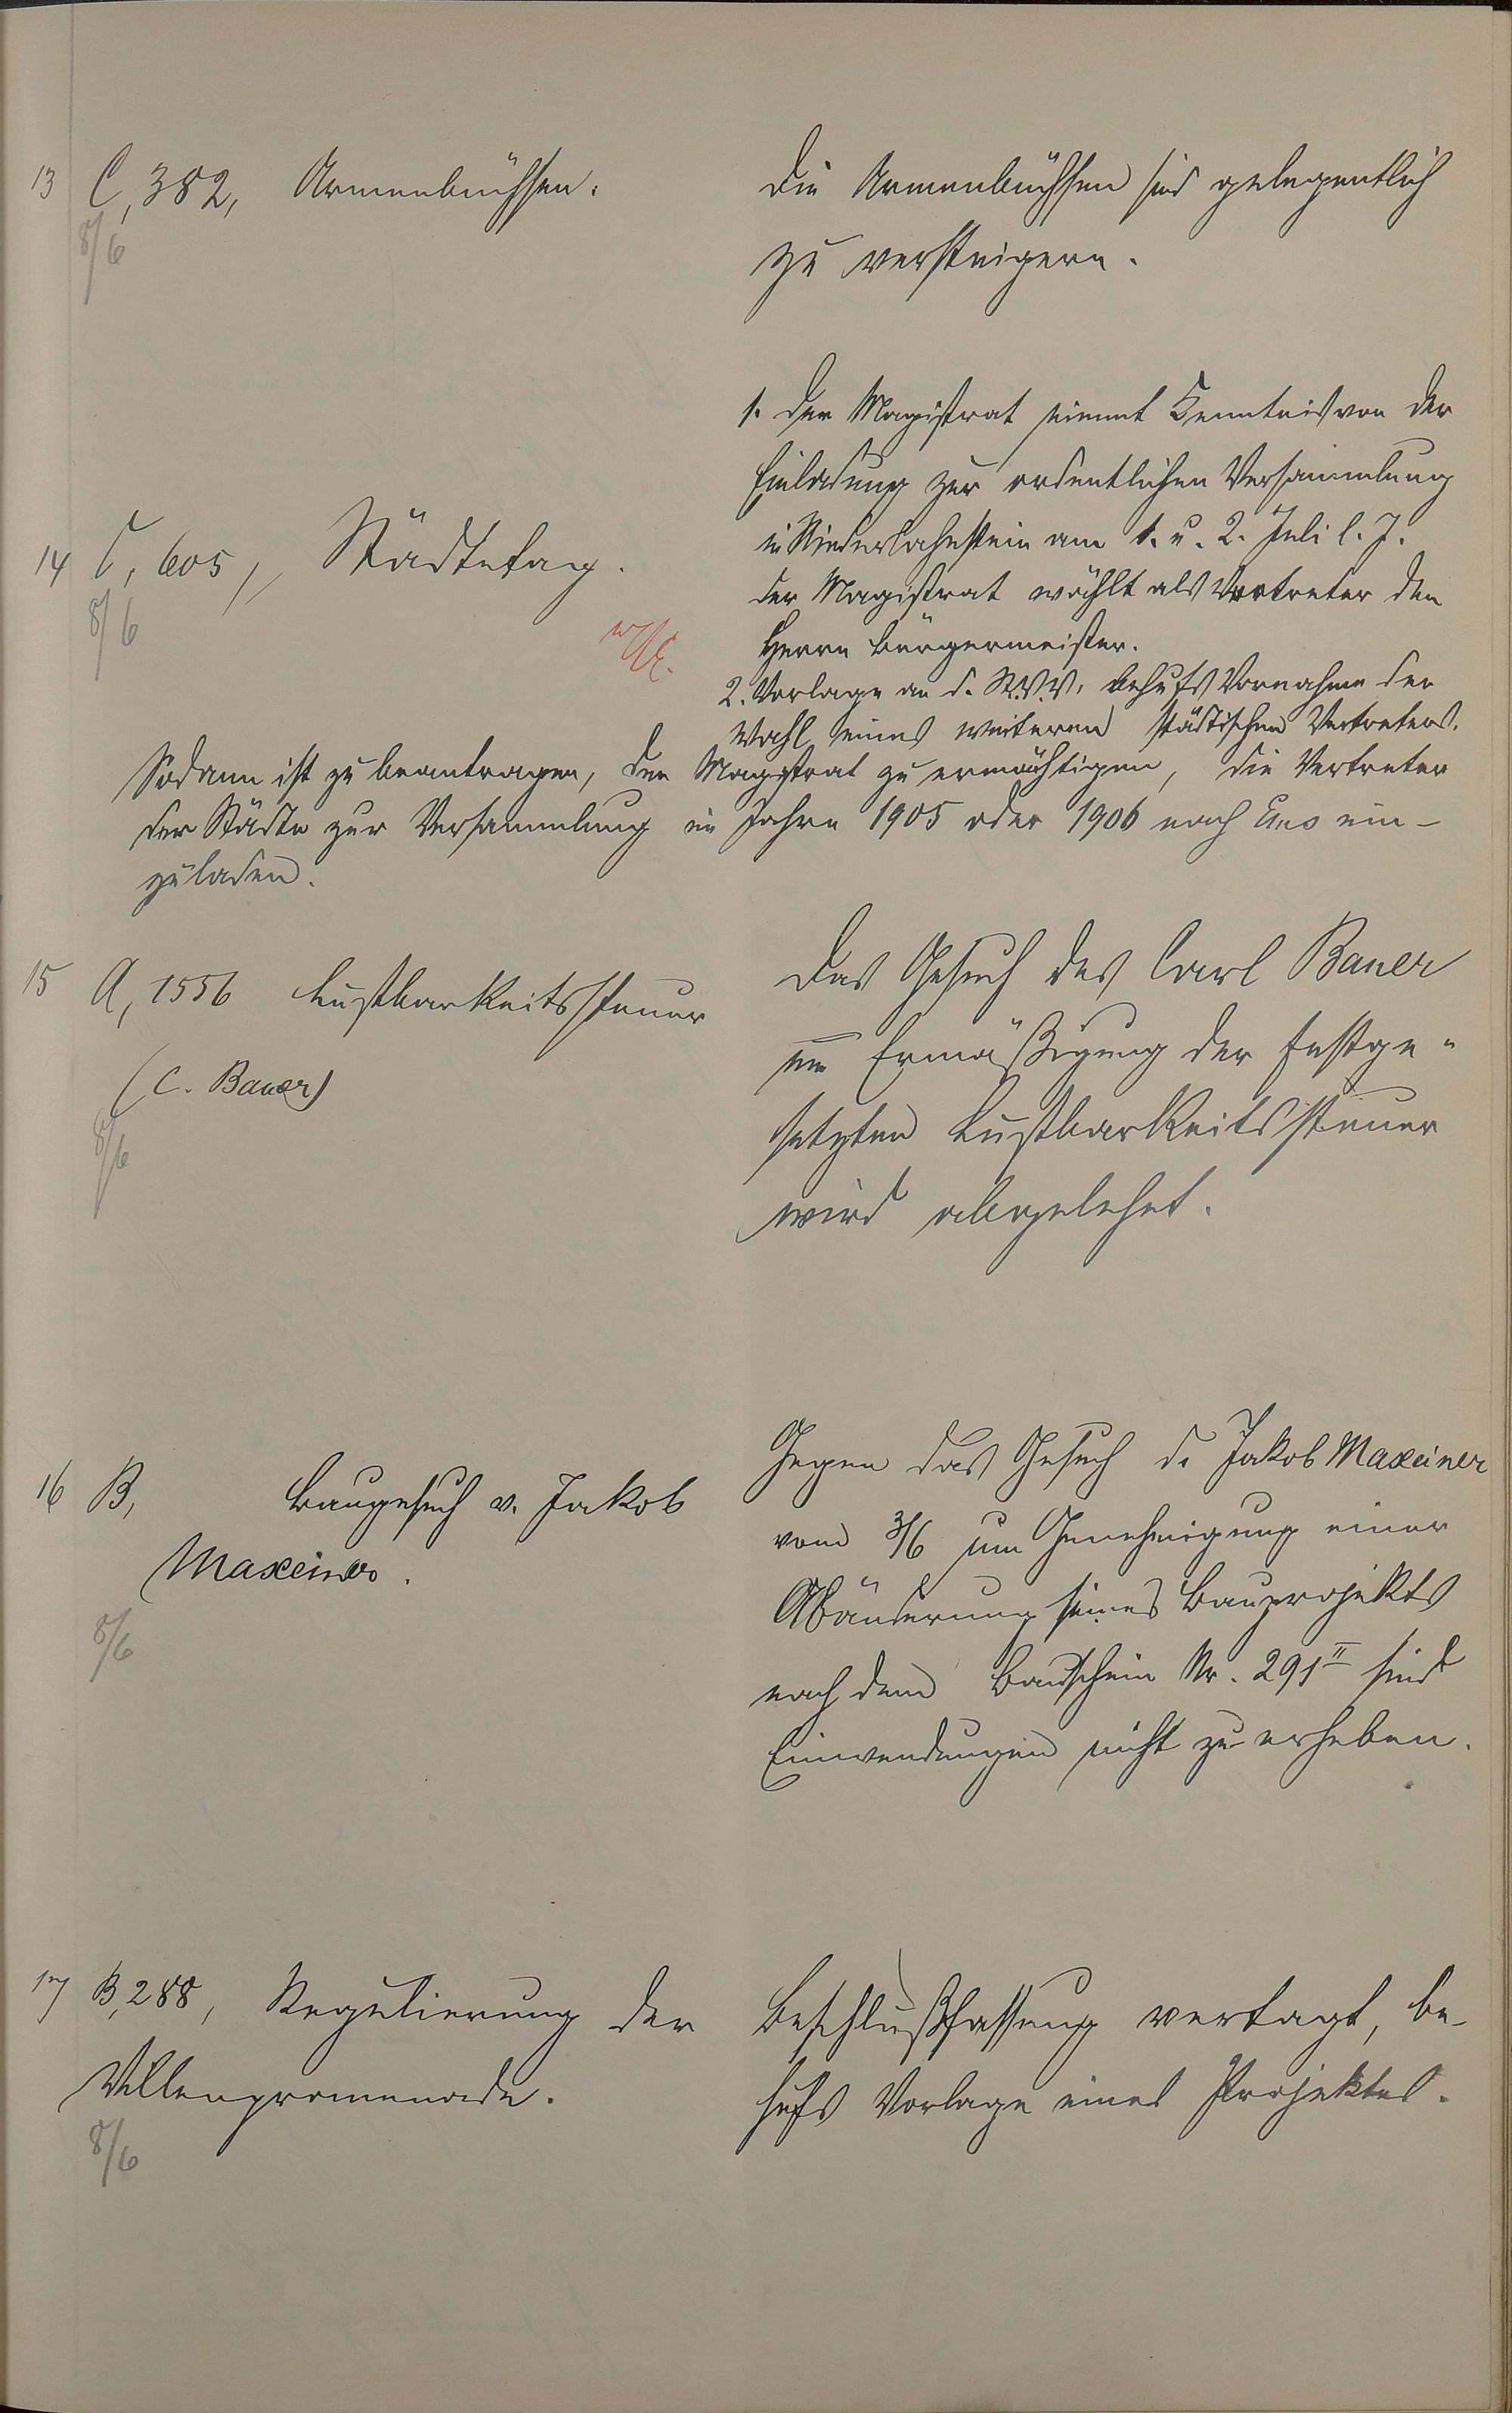 13 C, 382, Armenbüchsen.
8/6
Die Armenbüchsen sind gelegentlich
zu versteigern.
14 C, 605, Städtetag.
8/6
1. Der Magistrat nimmt Kenntnis von der
Einladung zur ordentlichen Versammlung
in Niederlahnstein am 1. u. 2. Juli l. J.
Der Magistrat wählt als Vertreter den
Herrn Bürgermeister.
2. Vorlage an d. St.V.V. behufs Vornahme der
Wahl eines weiteren städtischen Vertreters.
Sodann ist zu beantragen, den Magistrat zu ermächtigen, die Vertreter
der Städte zur Versammlung im Jahre 1905 oder 1906 nach Ems ein-
zuladen.
15 A, 1556 Lustbarkeitssteuer
(C. Bauer)
8/6
Das Gesuch des Carl Bauer
um Ermäßigung der festge-
setzten Lustbarkeitssteuer
wird abgelehnt.
16 B, Baugesuch v. Jakob
Maxeiner.
8/6
Gegen das Gesuch d. Jakob Maxeiner
vom 3/6 um Genehmigung einer
Abänderung seines Bauprojekts
nach dem Bauschein Nr. 291 II sind
Einwendungen nicht zu erheben.
17 B, 288, Regulierung der
Villenpromenade.
8/6
Beschlußfassung vertagt, be-
hufs Vorlage eines Projektes.